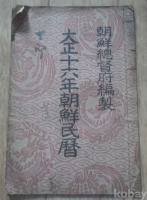 朝鮮總督府編製
大正十六年朝鮮民曆